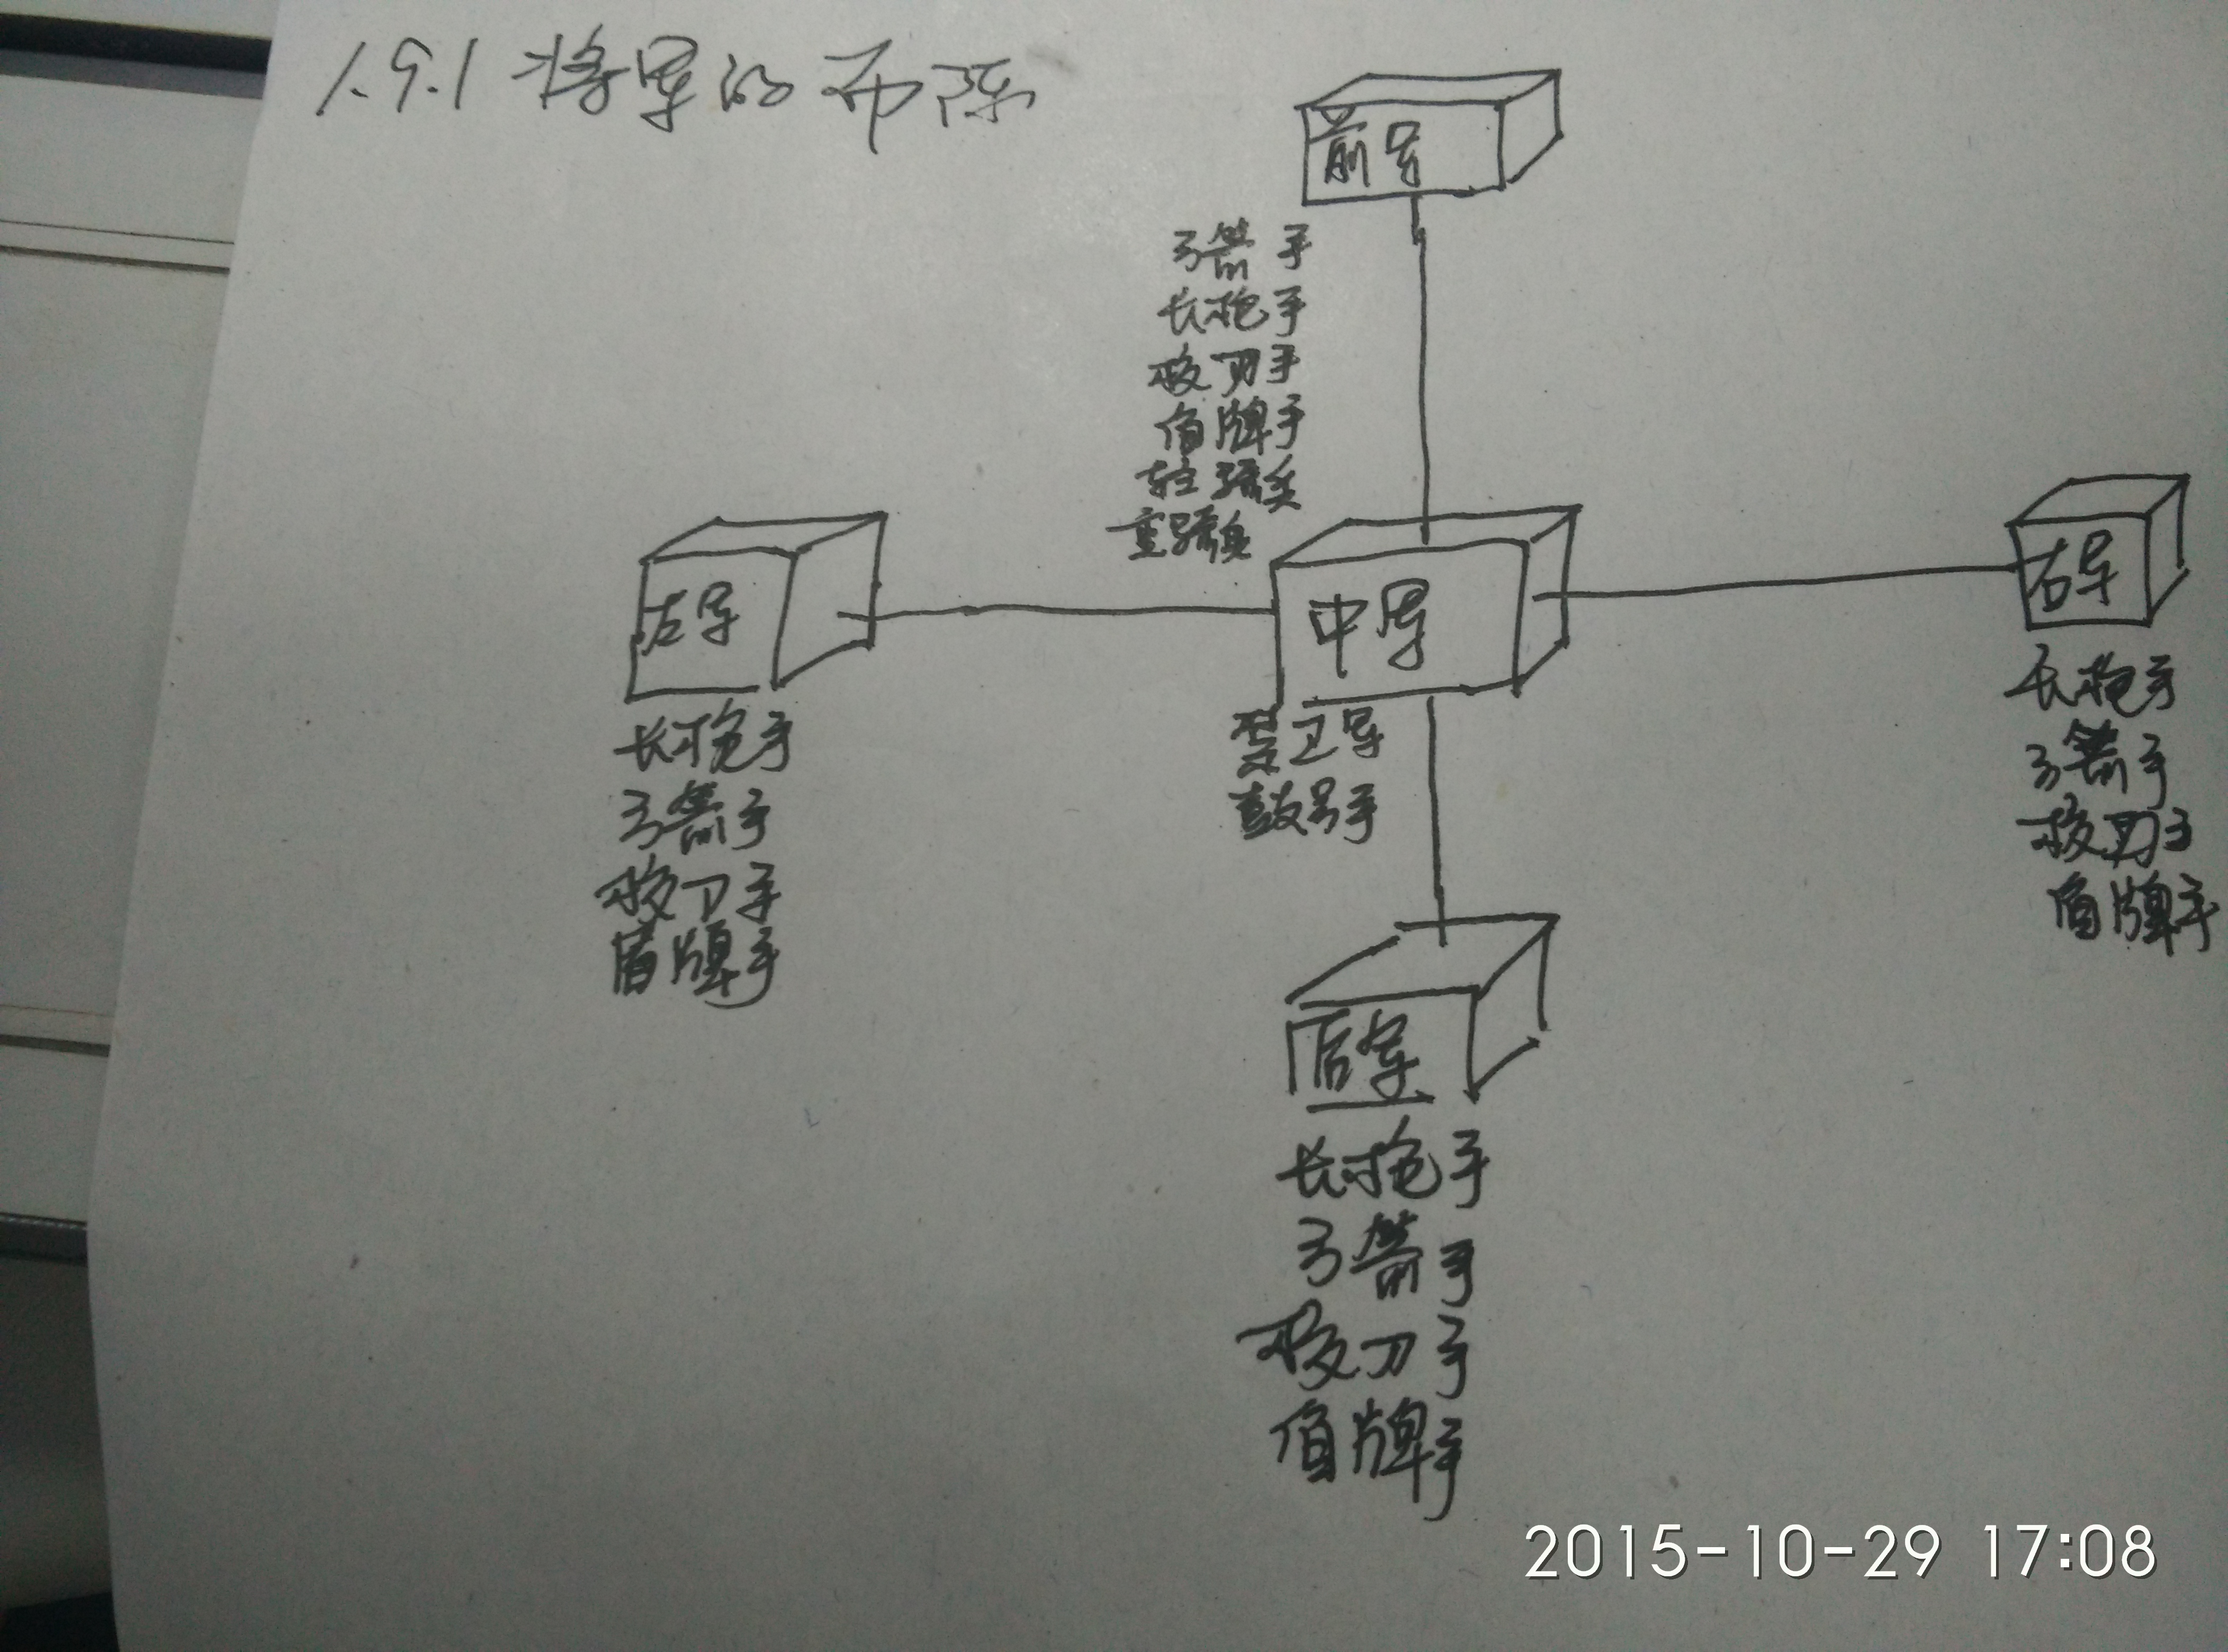 1.9.1 将军的布阵
前军
弓箭手
长枪手
砍刀手
盾牌手
轻骑兵
重骑兵
左军
长枪手
弓箭手
砍刀手
盾牌手
中军
禁卫军
鼓号手
右军
长枪手
弓箭手
砍刀手
盾牌手
后军
长枪手
弓箭手
砍刀手
盾牌手
2015-10-29 17:08